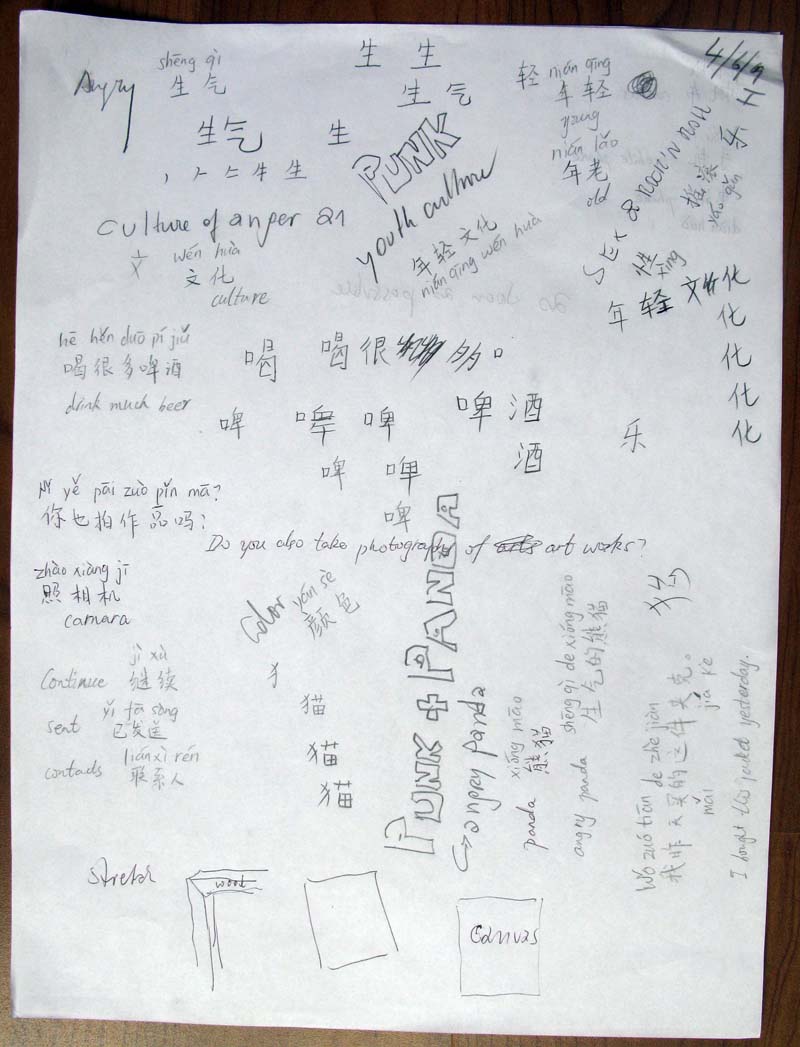 Angry
shēng qì
生气
生 生
生气
生气
生
丶 𠂉 牛 生
轻
nián qīng
年轻
young
nián lǎo
年老
old
PUNK
youth culture
年轻文化
nián qīng wén huà
SEX & ROCK'N ROLL
性
xìng
摇滚 乐
yáo gǔn
年轻文化
化
化
化
化
culture of anger
文
wén huà
文化
culture
hē hěn duō pí jiǔ
喝很多啤酒
drink much beer
喝 喝很 多。
啤 啤 啤 啤酒
啤 啤 酒
啤
乐
Nǐ yě pāi zuò pǐn mā?
你也拍作品吗?
Do you also take photography of art works?
zhào xiàng jī
照相机
camara
color yán sè
颜色
continue jì xù
继续
sent yǐ fā sòng
已发送
contacts lián xì rén
联系人
犭
猫
猫
猫
PUNK + PANDA
→ angry panda
xióng māo
panda 熊猫
shēng qì de xióng māo
angry panda 生气的熊猫
Wǒ zuó tiān de zhè jiàn
我昨天买的这件夹克。
mǎi jiā kè
I bought this jacket yesterday.
stretch
wood
Canvas